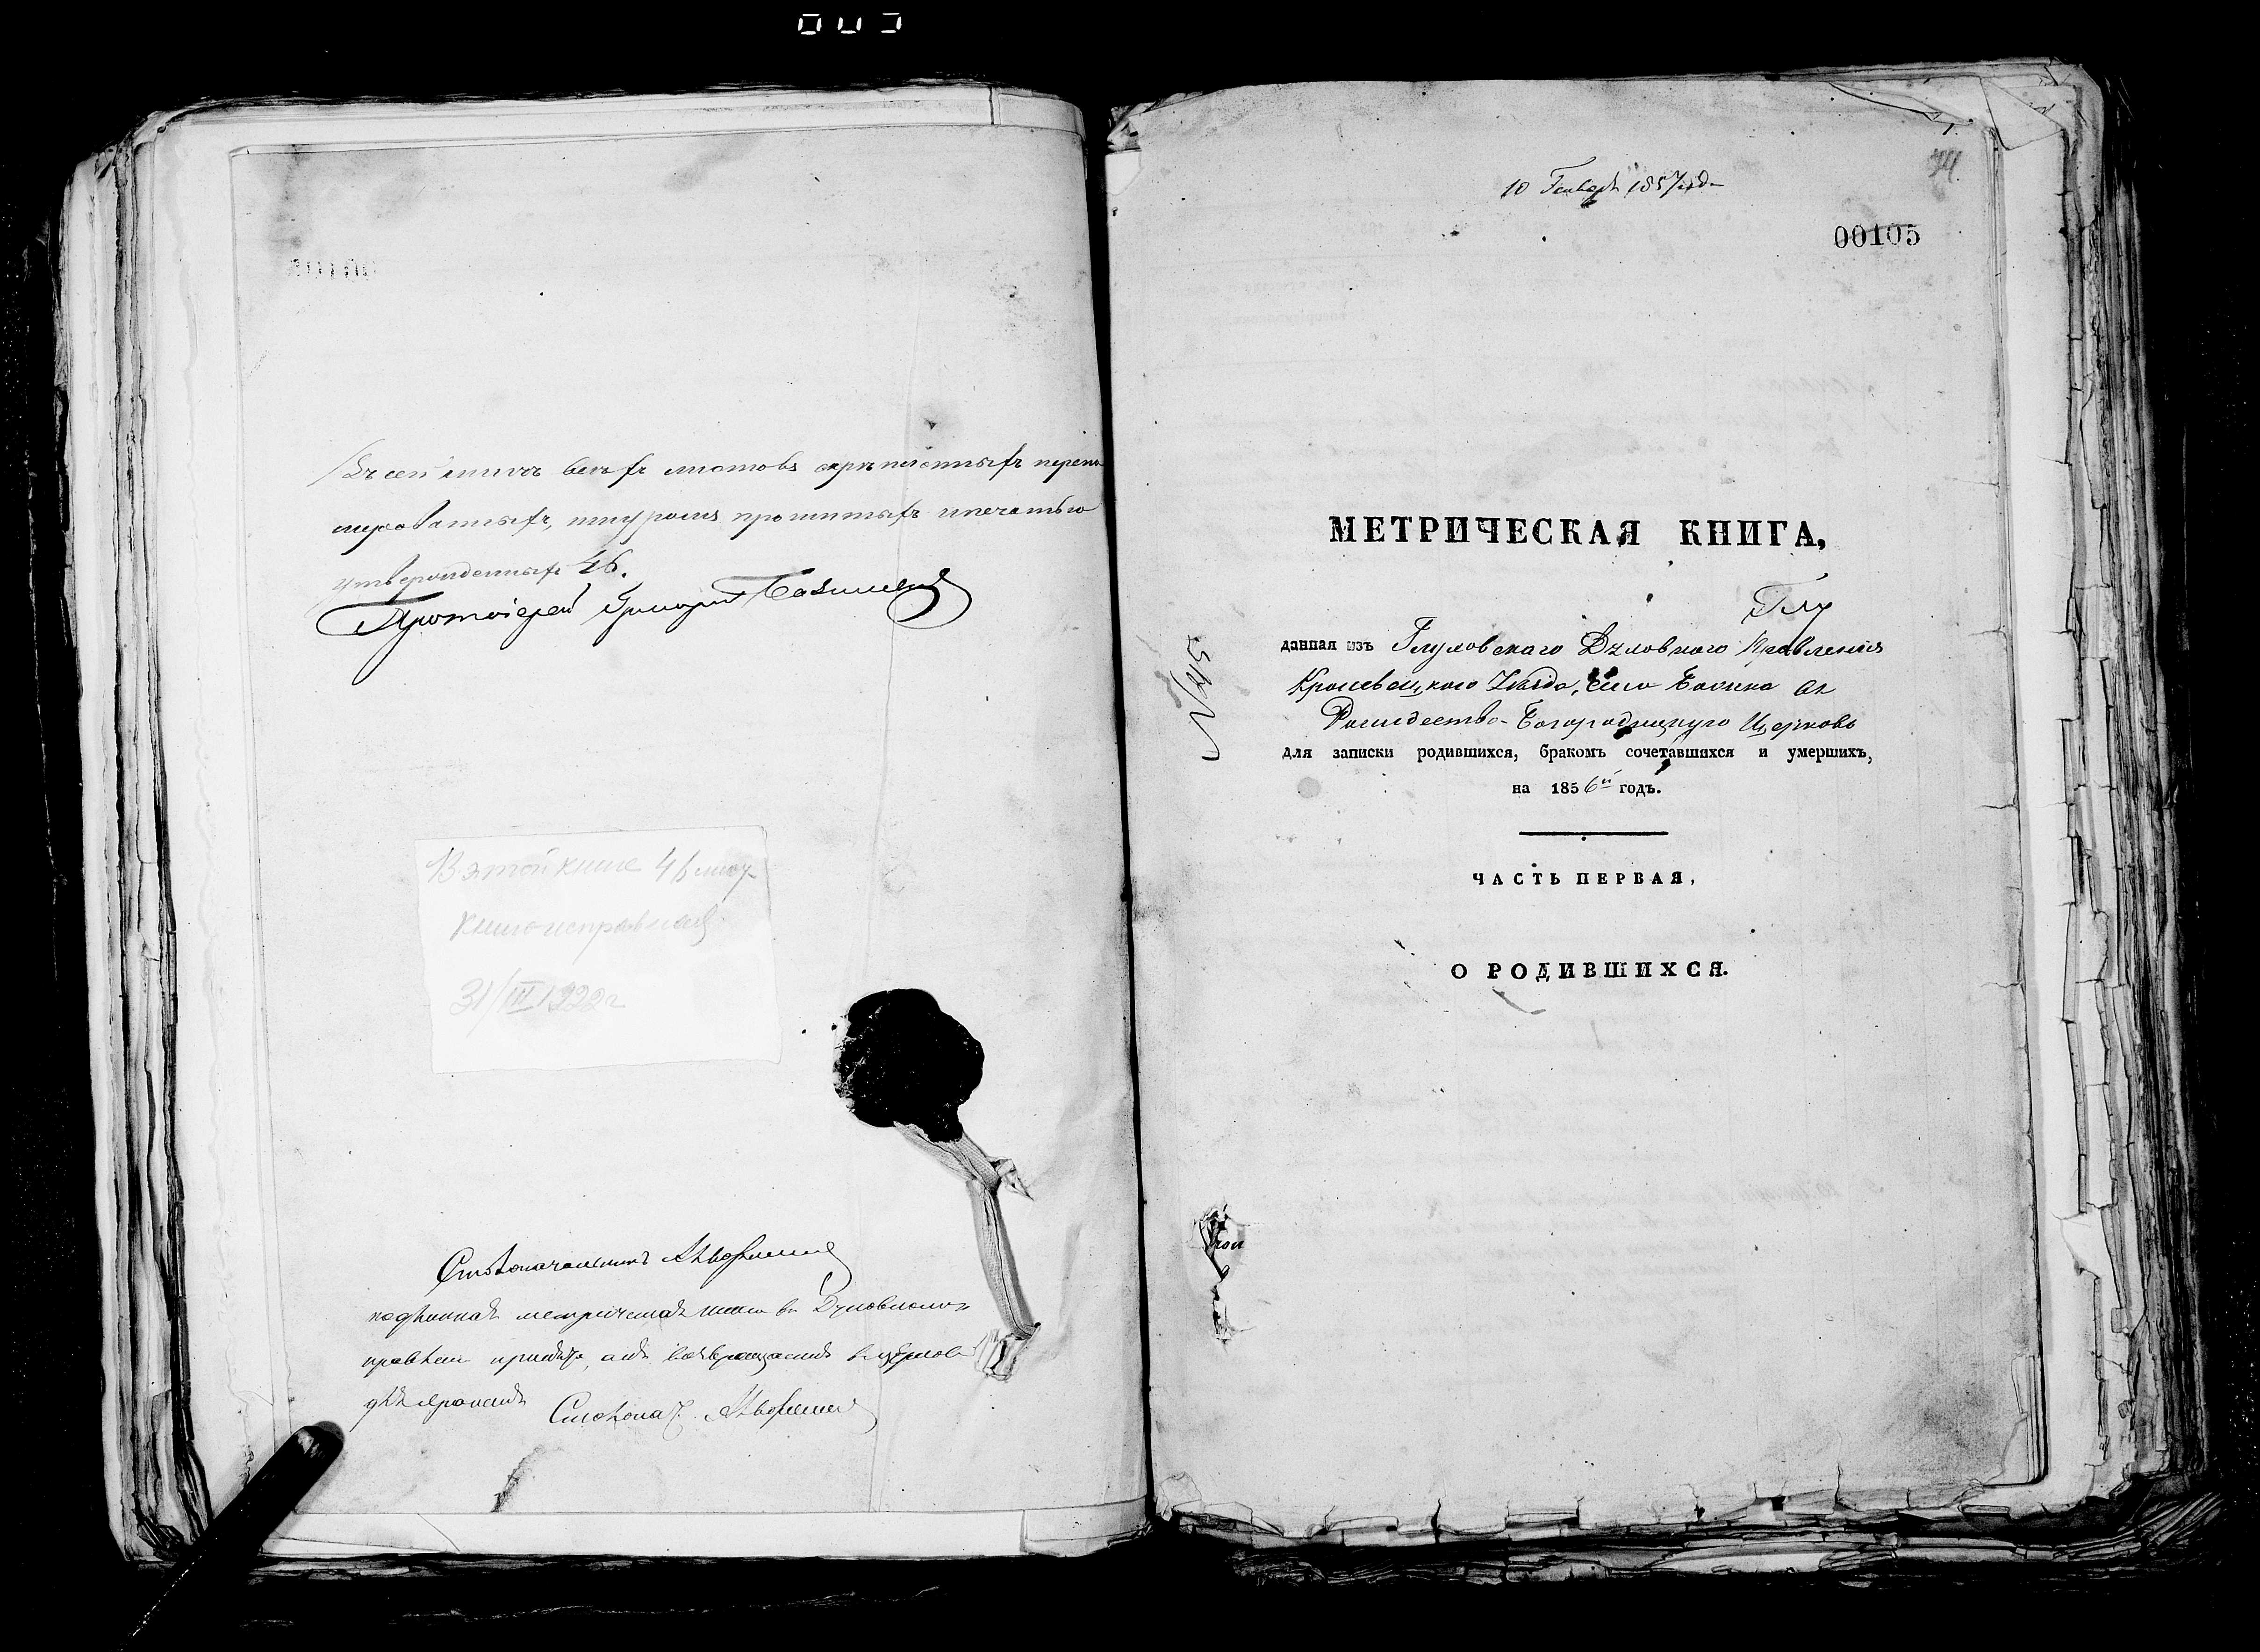 Въ сей книгѣ всѣхъ листовъ скрѣпленныхъ перену-
мерованныхъ, шнуромъ прошитыхъ и печатью
утвержденныхъ 46.
Протоіерей Григорій
В этой книге 46
книга исправлена
31/III 1922 г
Столоначальникъ
метрическая книга въ Духовномъ
правленіи принята, а возвращается въ церковь
для храненія Столонач.
10 Генваря 1857 года
00105
МЕТРИЧЕСКАЯ КНИГА,
Глу
данная изъ Глуховскаго Духовнаго Правленія
Кролевецкаго Уѣзда, села въ
Рождество-Богородицкую Церковь
для записки родившихся, бракомъ сочетавшихся и умершихъ,
на 1856й годъ.
№45
ЧАСТЬ ПЕРВАЯ,
О РОДИВШИХСЯ.